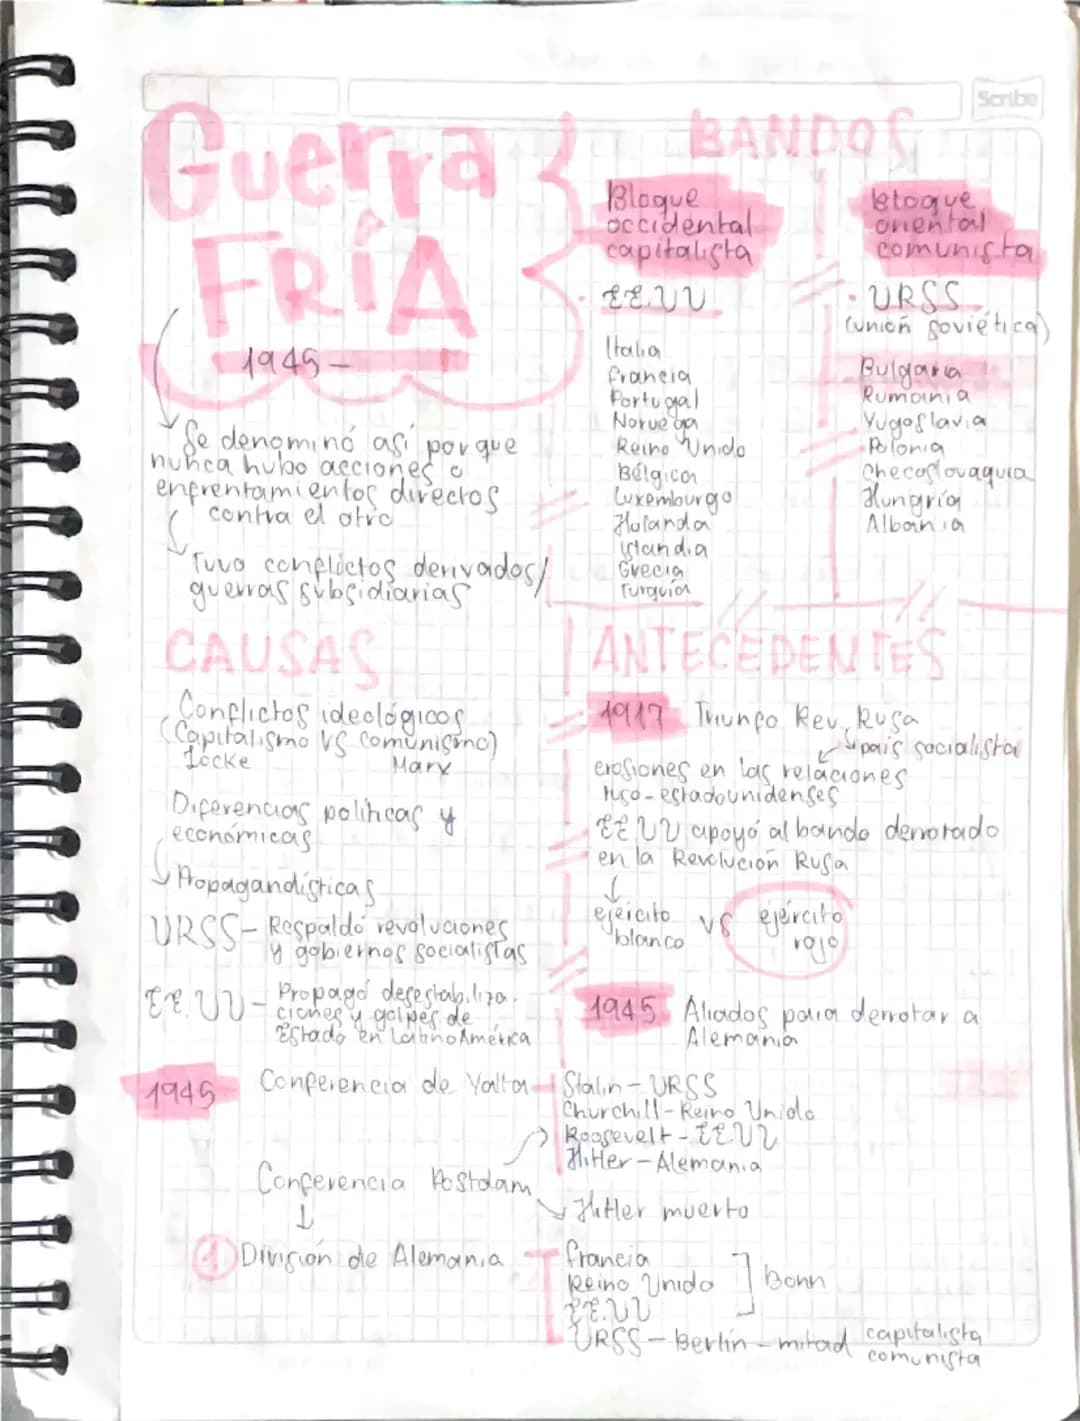 Scribe
Guerra
FRÍA
1945-
Se denominó así porque
nunca hubo acciones o
enfrentamientos directos
contra el otro
Tuvo conflictos derivados/
guerras subsidiarias
BANDOS
Bloque
occidental
capitalista
EE.UU
Italia
Francia
Portugal
Noruega
Reino Unido
Bélgica
Luxemburgo
Holanda
Islandia
Grecia
Turquía
Bloque
oriental
comunista
· URSS
(unión soviética)
Bulgaria
Rumania
Yugoslavia
Polonia
Checoslovaquia
Hungría
Albania
CAUSAS
Conflictos ideológicos
(Capitalismo vs comunismo)
Locke Marx
Diferencias políticas y
económicas
Propagandísticas
URSS- Respaldó revoluciones
y gobiernos socialistas
EE.UU- Propagó desestabiliza-
ciones y golpes de
Estado en LatinoAmérica
ANTECEDENTES
1917 Triunfo Rev. Rusa
país socialista
erosiones en las relaciones
ruso-estadounidenses
EEUU apoyó al bando derrotado
en la Revolución Rusa
ejército blanco vs ejército rojo
1945 Aliados para derrotar a
Alemania
1945 Conferencia de Yalta
Stalin-URSS
Churchill-Reino Unido
Roosevelt-EEUU
Hitler-Alemania
Conferencia Postdam
Hitler muerto
1 División de Alemania
Francia
Reino Unido
EE.UU
Bonn
URSS-Berlín-mitad capitalista
comunista